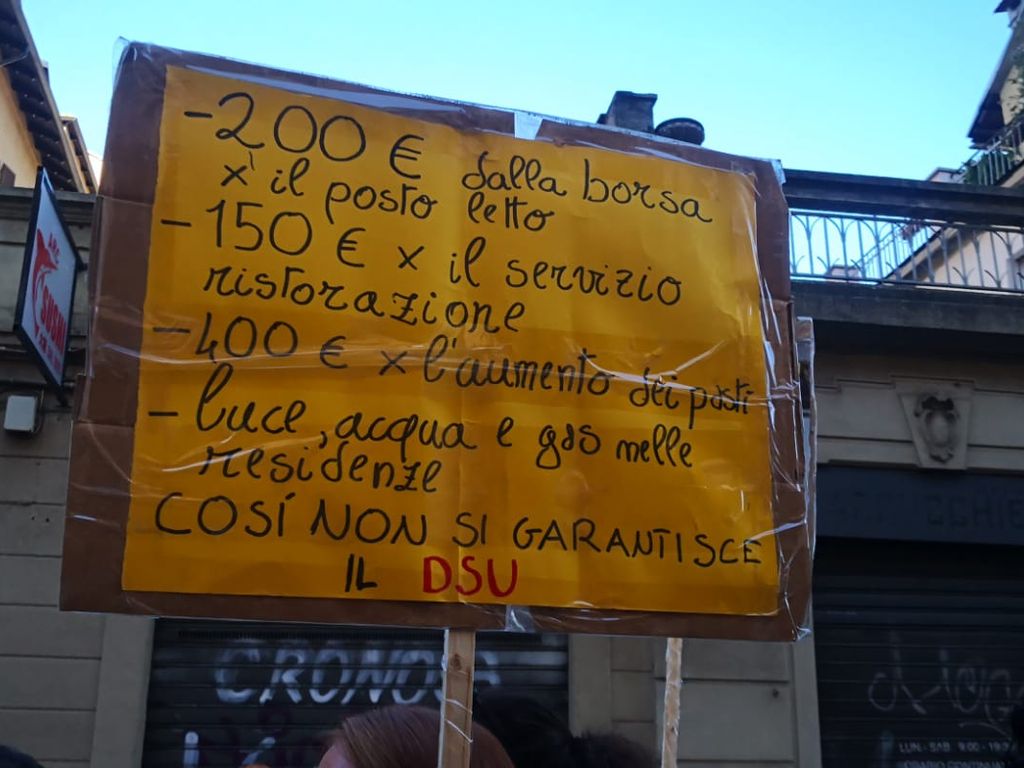 -200 € dalla borsa
x il posto letto
-150 € x il servizio
ristorazione
-400 € x l'aumento dei posti
- luce, acqua e gas nelle
residenze
COSÍ NON SI GARANTISCE
IL DSU
SUSHI
CRONOS
LUN-SAB 9:00-19:30
ORARIO CONTINUATO